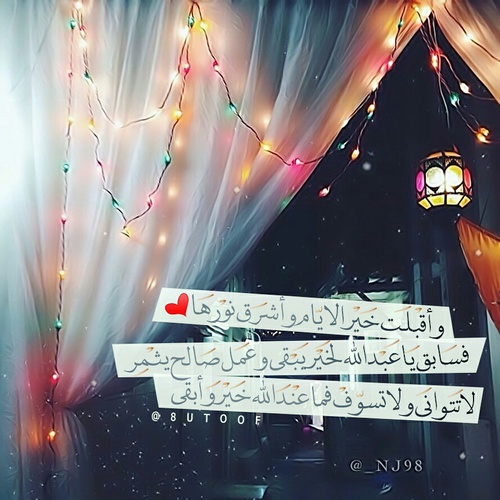 وأقْبَلَت خَيْر الايام وأشرَق نورُها
فسَابق ياعَبدالله لخَيرٍ يَبقى وعَمل صَالح يثمْر
لاتتوانَى ولاتسوّف فما عندَالله خَيْر وأبقى
@8UTOOF
@_NJ98